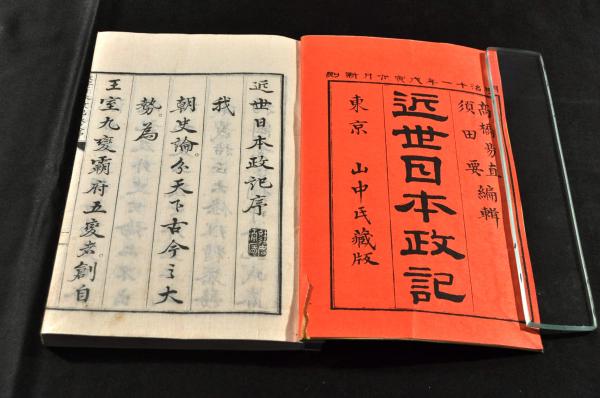 明治十一年戊寅六月新刻
高橋易直
須田要 編輯
近世日本政記
東京 山中氏藏版
近世日本政記序
我
朝史論。分天下古今之大
勢。為
王室九變霸府五變者。創自